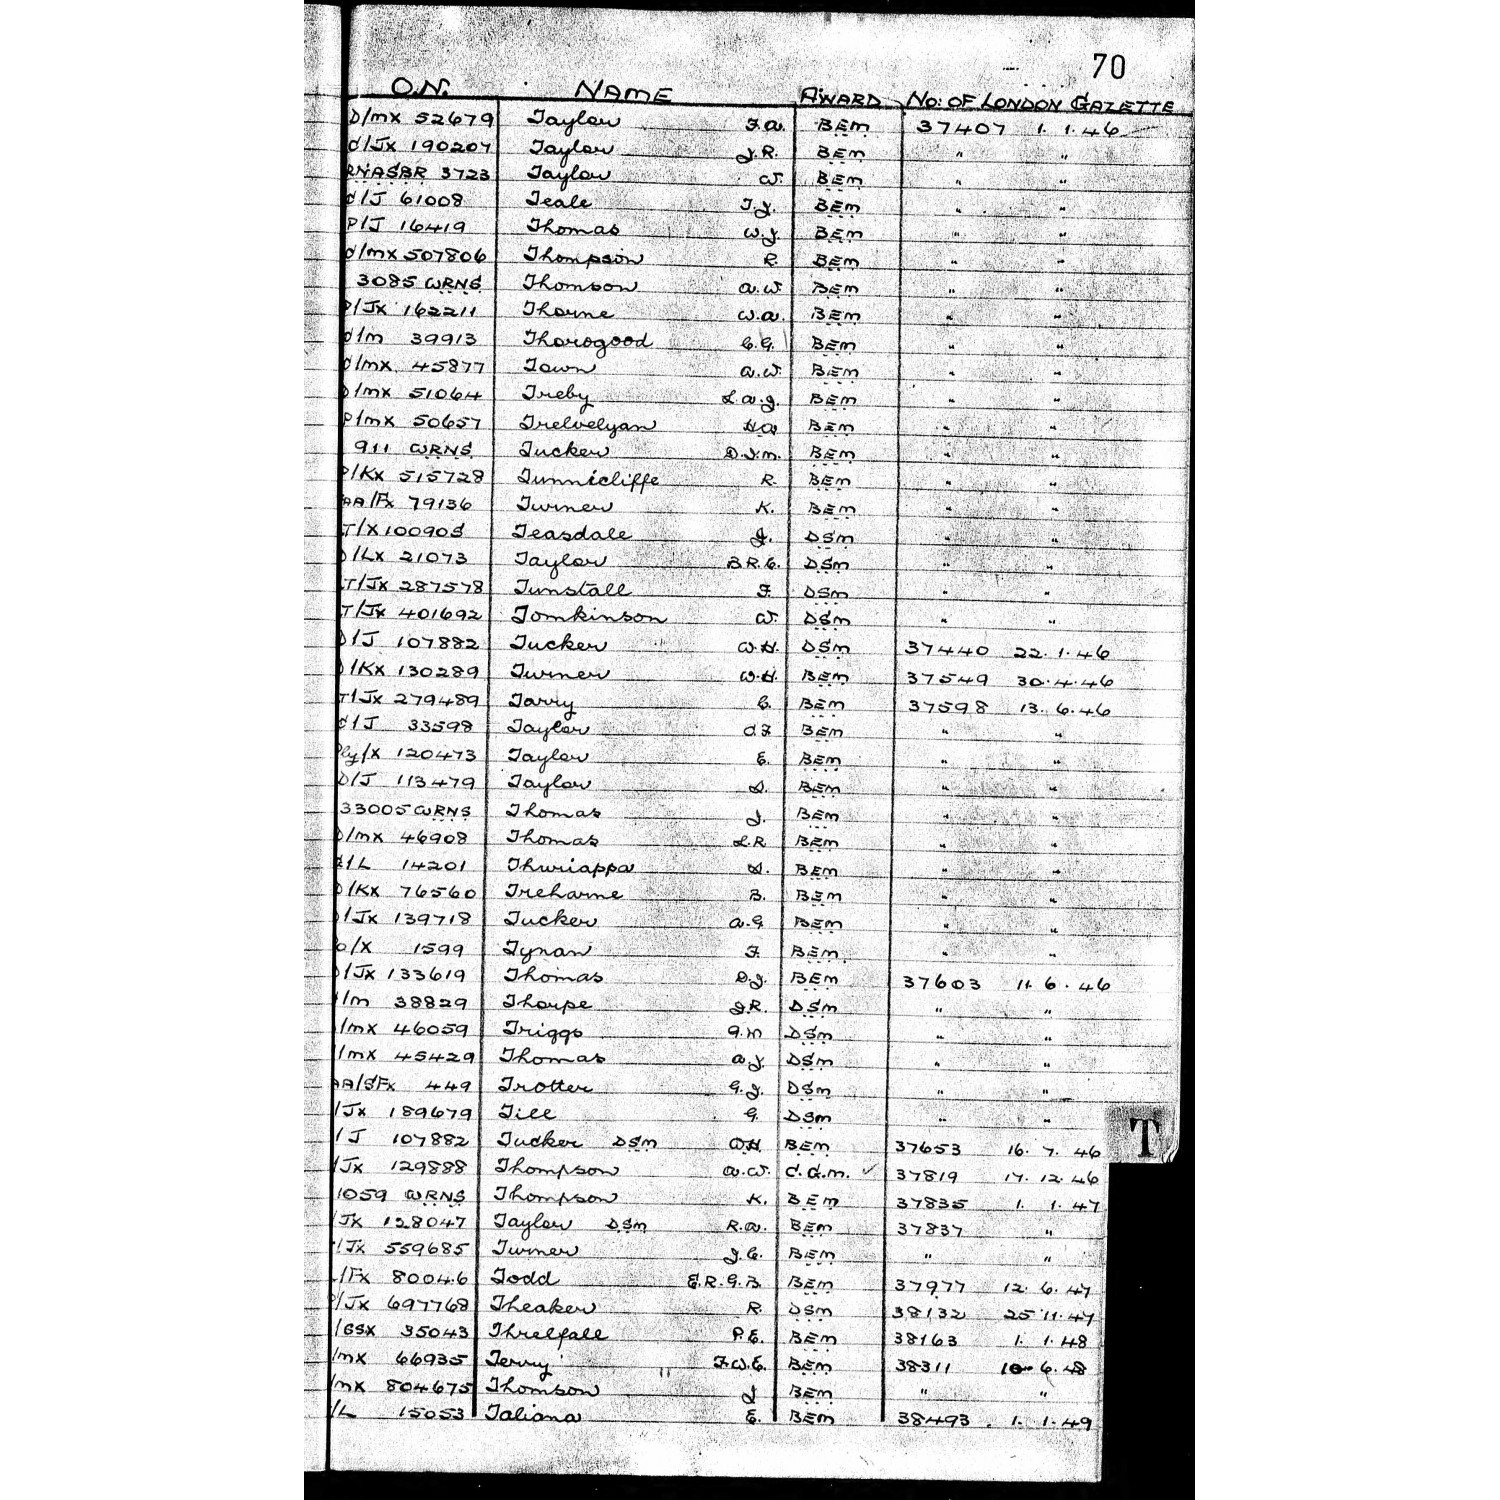 70
O.N. NAME AWARD No: OF LONDON GAZETTE
D/MX 52679 Taylor F.A. BEM 37407 1.1.46
C/JX 190207 Taylor J.R. BEM " "
RNASBR 3723 Taylor W. BEM " "
C/J 61008 Teale T.J. BEM " "
P/J 16419 Thomas W.J. BEM " "
C/MX 507806 Thompson R. BEM " "
3085 WRNS Thomson A.W BEM " "
P/JX 162211 Thorne W.A. BEM " "
C/M 39913 Thorogood C.G. BEM " "
C/MX 45877 Town A.W. BEM " "
D/MX 51064 Treby L.A.J. BEM " "
P/MX 50657 Trelvelyan H.A BEM " "
911 WRNS Tucker D.J.M. BEM " "
P/KX 515728 Tunnicliffe R. BEM " "
FAA/FX 79136 Turner K. BEM " "
LT/X 10090S Teasdale J. DSM " "
D/LX 21073 Taylor B.R.C. DSM " "
LT/JX 287578 Tunstall F. DSM " "
LT/JX 401692 Tomkinson W. DSM " "
D/J 107882 Tucker W.H. DSM 37440 22.1.46
D/KX 130289 Turner W.H. BEM 37549 30.4.46
LT/JX 279489 Tarry C. BEM 37598 13.6.46
C/J 33598 Taylor C.F BEM " "
Ply/X 120473 Taylor E. BEM " "
D/J 113479 Taylor S. BEM " "
33005 WRNS Thomas J. BEM " "
D/MX 46908 Thomas L.R BEM " "
/L 14201 Thuriappa S. BEM " "
D/KX 76560 Treharne B. BEM " "
/JX 139718 Tucker A.G BEM " "
/X 1599 Tynan F. BEM " "
/JX 133619 Thomas D.J. BEM 37603 11.6.46
/M 38829 Thorpe J.R. DSM " "
/MX 46059 Triggs G.M DSM " "
/MX 45429 Thomas A.J. DSM " "
AA/SFX 449 Trotter G.J. DSM " "
/JX 189679 Till G. DSM " "
T
/J 107882 Tucker DSM W.H. BEM 37653 16.7.46
/JX 129888 Thompson A.W. C.G.M. ✓ 37819 17.12.46
1059 WRNS Thompson K. BEM 37835 1.1.47
/JX 128047 Taylor DSM R.A. BEM 37837 "
/JX 559685 Turner J.C. BEM " "
/FX 80046 Todd E.R.G.B. BEM 37977 12.6.47
/JX 697768 Theaker R. DSM 38132 25.11.47
/SSX 35043 Threlfall P.E. BEM 38163 1.1.48
/MX 66935 Terry F.W.E. BEM 38311 10.6.48
/MX 804675 Thomson J BEM " "
/L 15053 Taliana E. BEM 38493 1.1.49